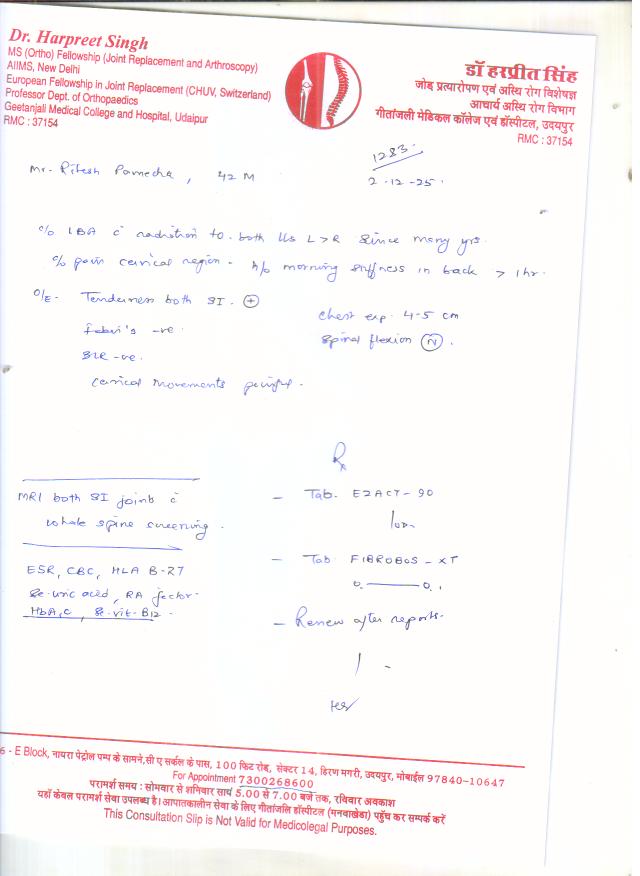 Dr. Harpreet Singh
MS (Ortho) Fellowship (Joint Replacement and Arthroscopy)
AIIMS, New Delhi
European Fellowship in Joint Replacement (CHUV, Switzerland)
Professor Dept. of Orthopaedics
Geetanjali Medical College and Hospital, Udaipur
RMC : 37154
डॉ हरप्रीत सिंह
जोड़ प्रत्यारोपण एवं अस्थि रोग विशेषज्ञ
आचार्य अस्थि रोग विभाग
गीतांजली मेडिकल कॉलेज एवं हॉस्पीटल, उदयपुर
RMC : 37154
1283
2-12-25.
Mr. Ritesh Pamecha, 42 M
c/o LBA c̄ radiation to both LLs L>R since many yrs.
c/o pain cervical region - h/o morning stiffness in back > 1 hr.
O/E- Tenderness both SI. +
Chest exp. 4-5 cm
Faber's -ve.
Spinal flexion N.
SLR -ve.
Cervical movements painful.
Rx
MRI both SI joints c̄
whole spine screening.
- Tab. EZACT-90
1 OD
ESR, CBC, HLA B-27
Se-uric acid, RA factor-
HbA1C, Se-vit-B12-
- Tab FIBROBOS-XT
0 — 0
- Renew after reports.
6 - E Block, नायरा पेट्रोल पम्प के सामने, सी ए सर्कल के पास, 100 फिट रोड, सेक्टर 14, हिरण मगरी, उदयपुर, मोबाईल 97840-10647
For Appointment 7300268600
परामर्श समय : सोमवार से शनिवार सायं 5.00 से 7.00 बजे तक, रविवार अवकाश
यहाँ केवल परामर्श सेवा उपलब्ध है। आपातकालीन सेवा के लिए गीतांजलि हॉस्पीटल (मनवाखेडा) पहुँच कर सम्पर्क करें
This Consultation Slip is Not Valid for Medicolegal Purposes.